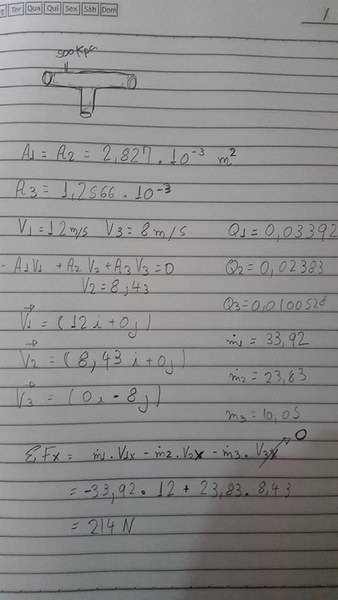 Ter Qua Qui Sex Sáb Dom
500 Kpa
A1 = A2 = 2,827 . 10⁻³ m²
A3 = 1,2566 . 10⁻³
V1 = 12 m/s V3 = 8 m/s Q1 = 0,03392
- A1V1 + A2 V2 + A3 V3 = 0 Q2 = 0,02383
V2 = 8,43
Q3 = 0,0100528
V1 = (12 i + 0j) ṁ1 = 33,92
V2 = (8,43 i + 0j) ṁ2 = 23,83
V3 = (0i - 8j) m3 = 10,05
ΣFx = ṁ1 . V1x - ṁ2 . V2x - ṁ3 . V3x 0
= -33,92 . 12 + 23,83 . 8,43
= 214 N